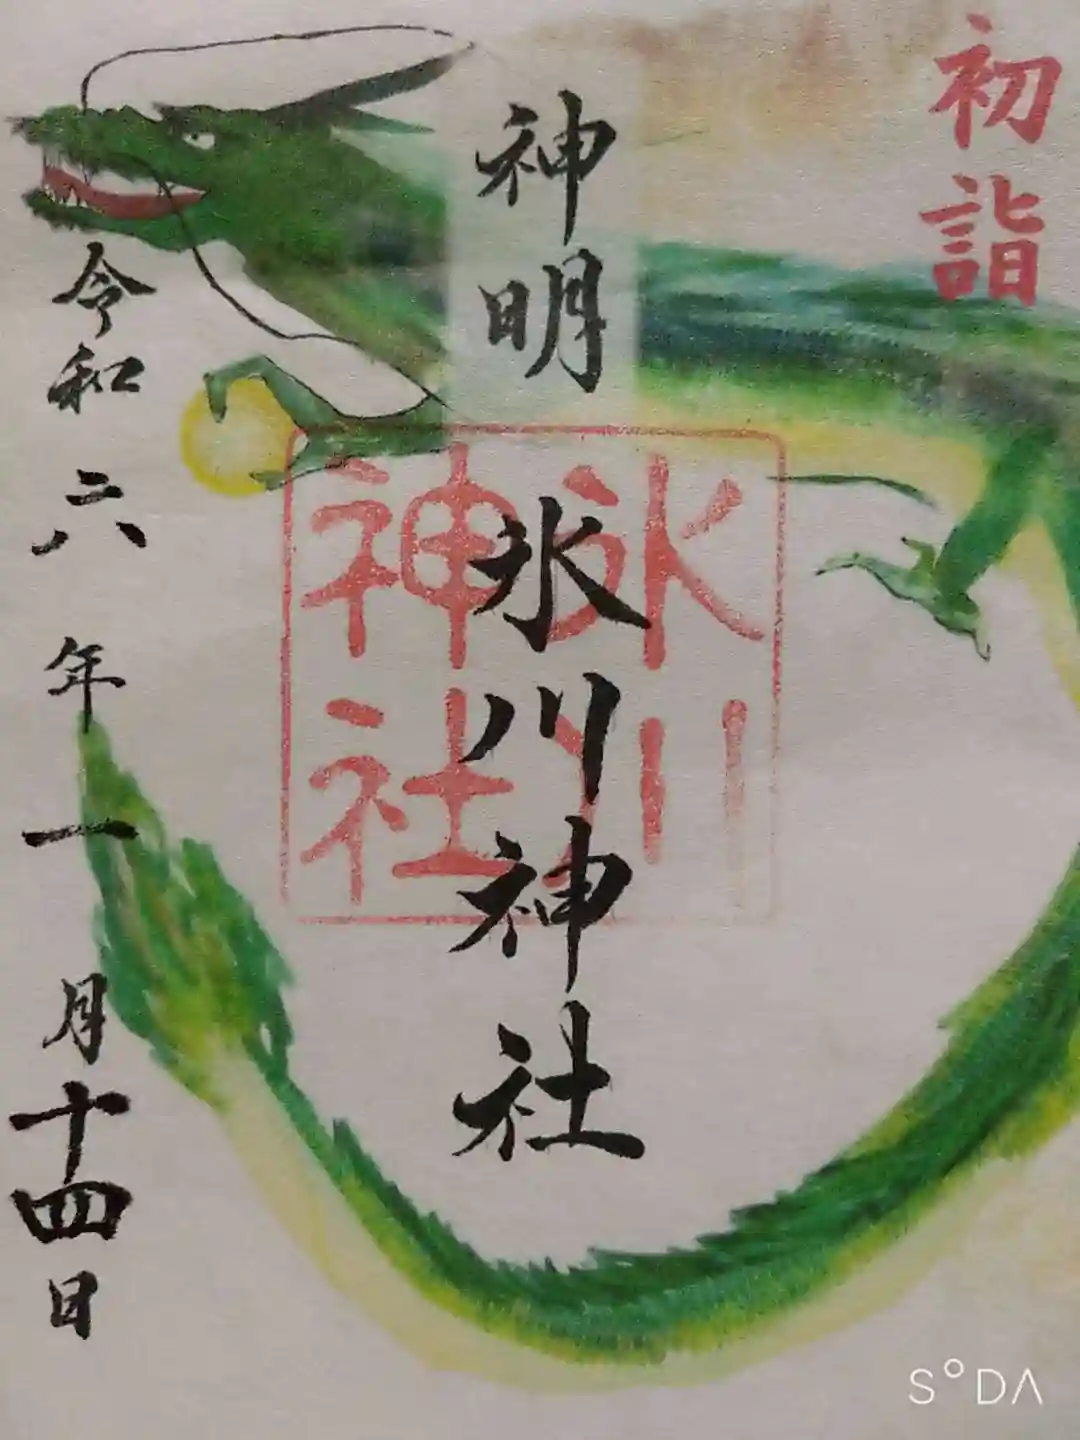 初詣
神明
氷川神社
氷川
神社
令和六年一月十四日
SODA